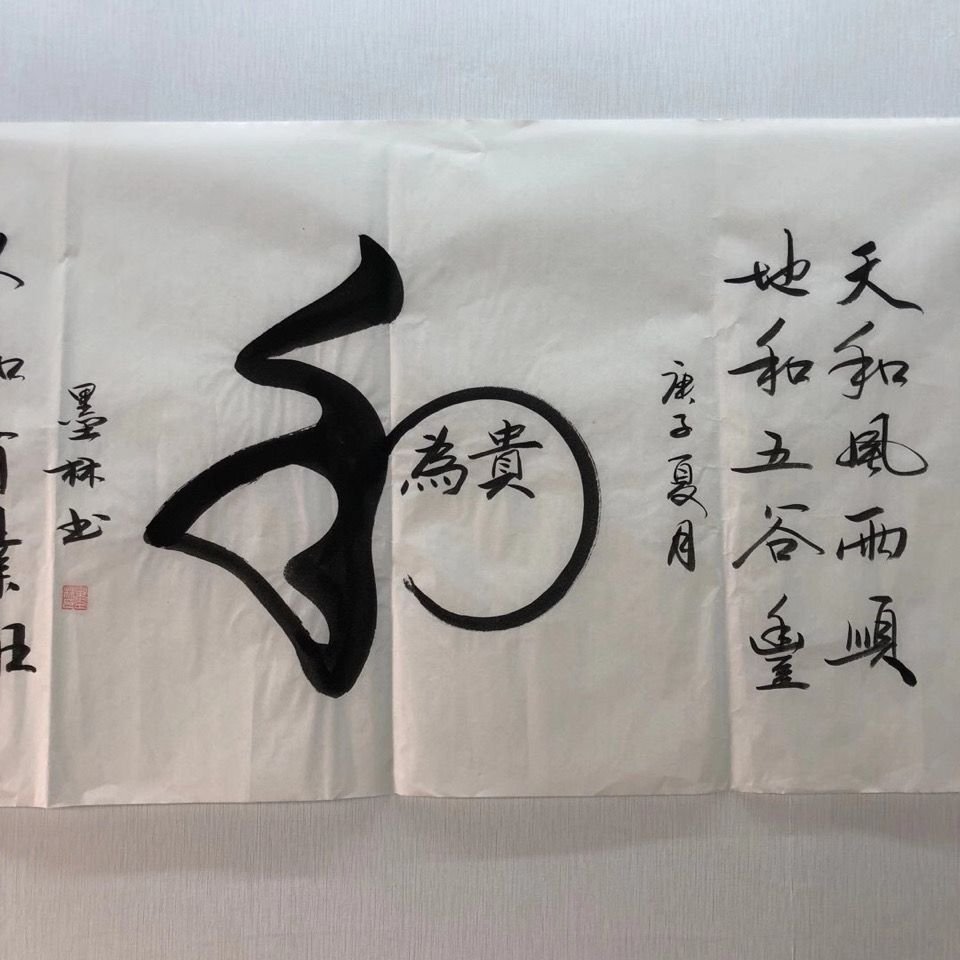 天和風雨順
地和五谷豐
庚子夏月
和
為貴
墨林书